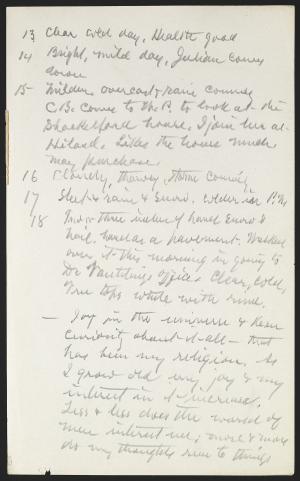 13 Clear cold day, Health good
14 Bright, mild day, Julian comes
down
15 Milder, overcast, rain coming
C.B. comes to W.P. to look at the
Shackelford house, I join her at
Hiland. Likes the house much
may purchase
16 Cloudy, thawey, storm coming
17 Sleet & rain & snow. colder in P.M.
18 Two or three inches of hard snow &
hail, hard as a pavement. Walked
over it this morning in going to
Dr office. Clear, cold,
Tree tops white with rime.
— Joy in the universe & keen
curiosity about it all — that
has been my religion. As
I grow old my joy & my
interest in it increases.
Less & less does the world of
men interest me, more & more
do my thoughts run to things